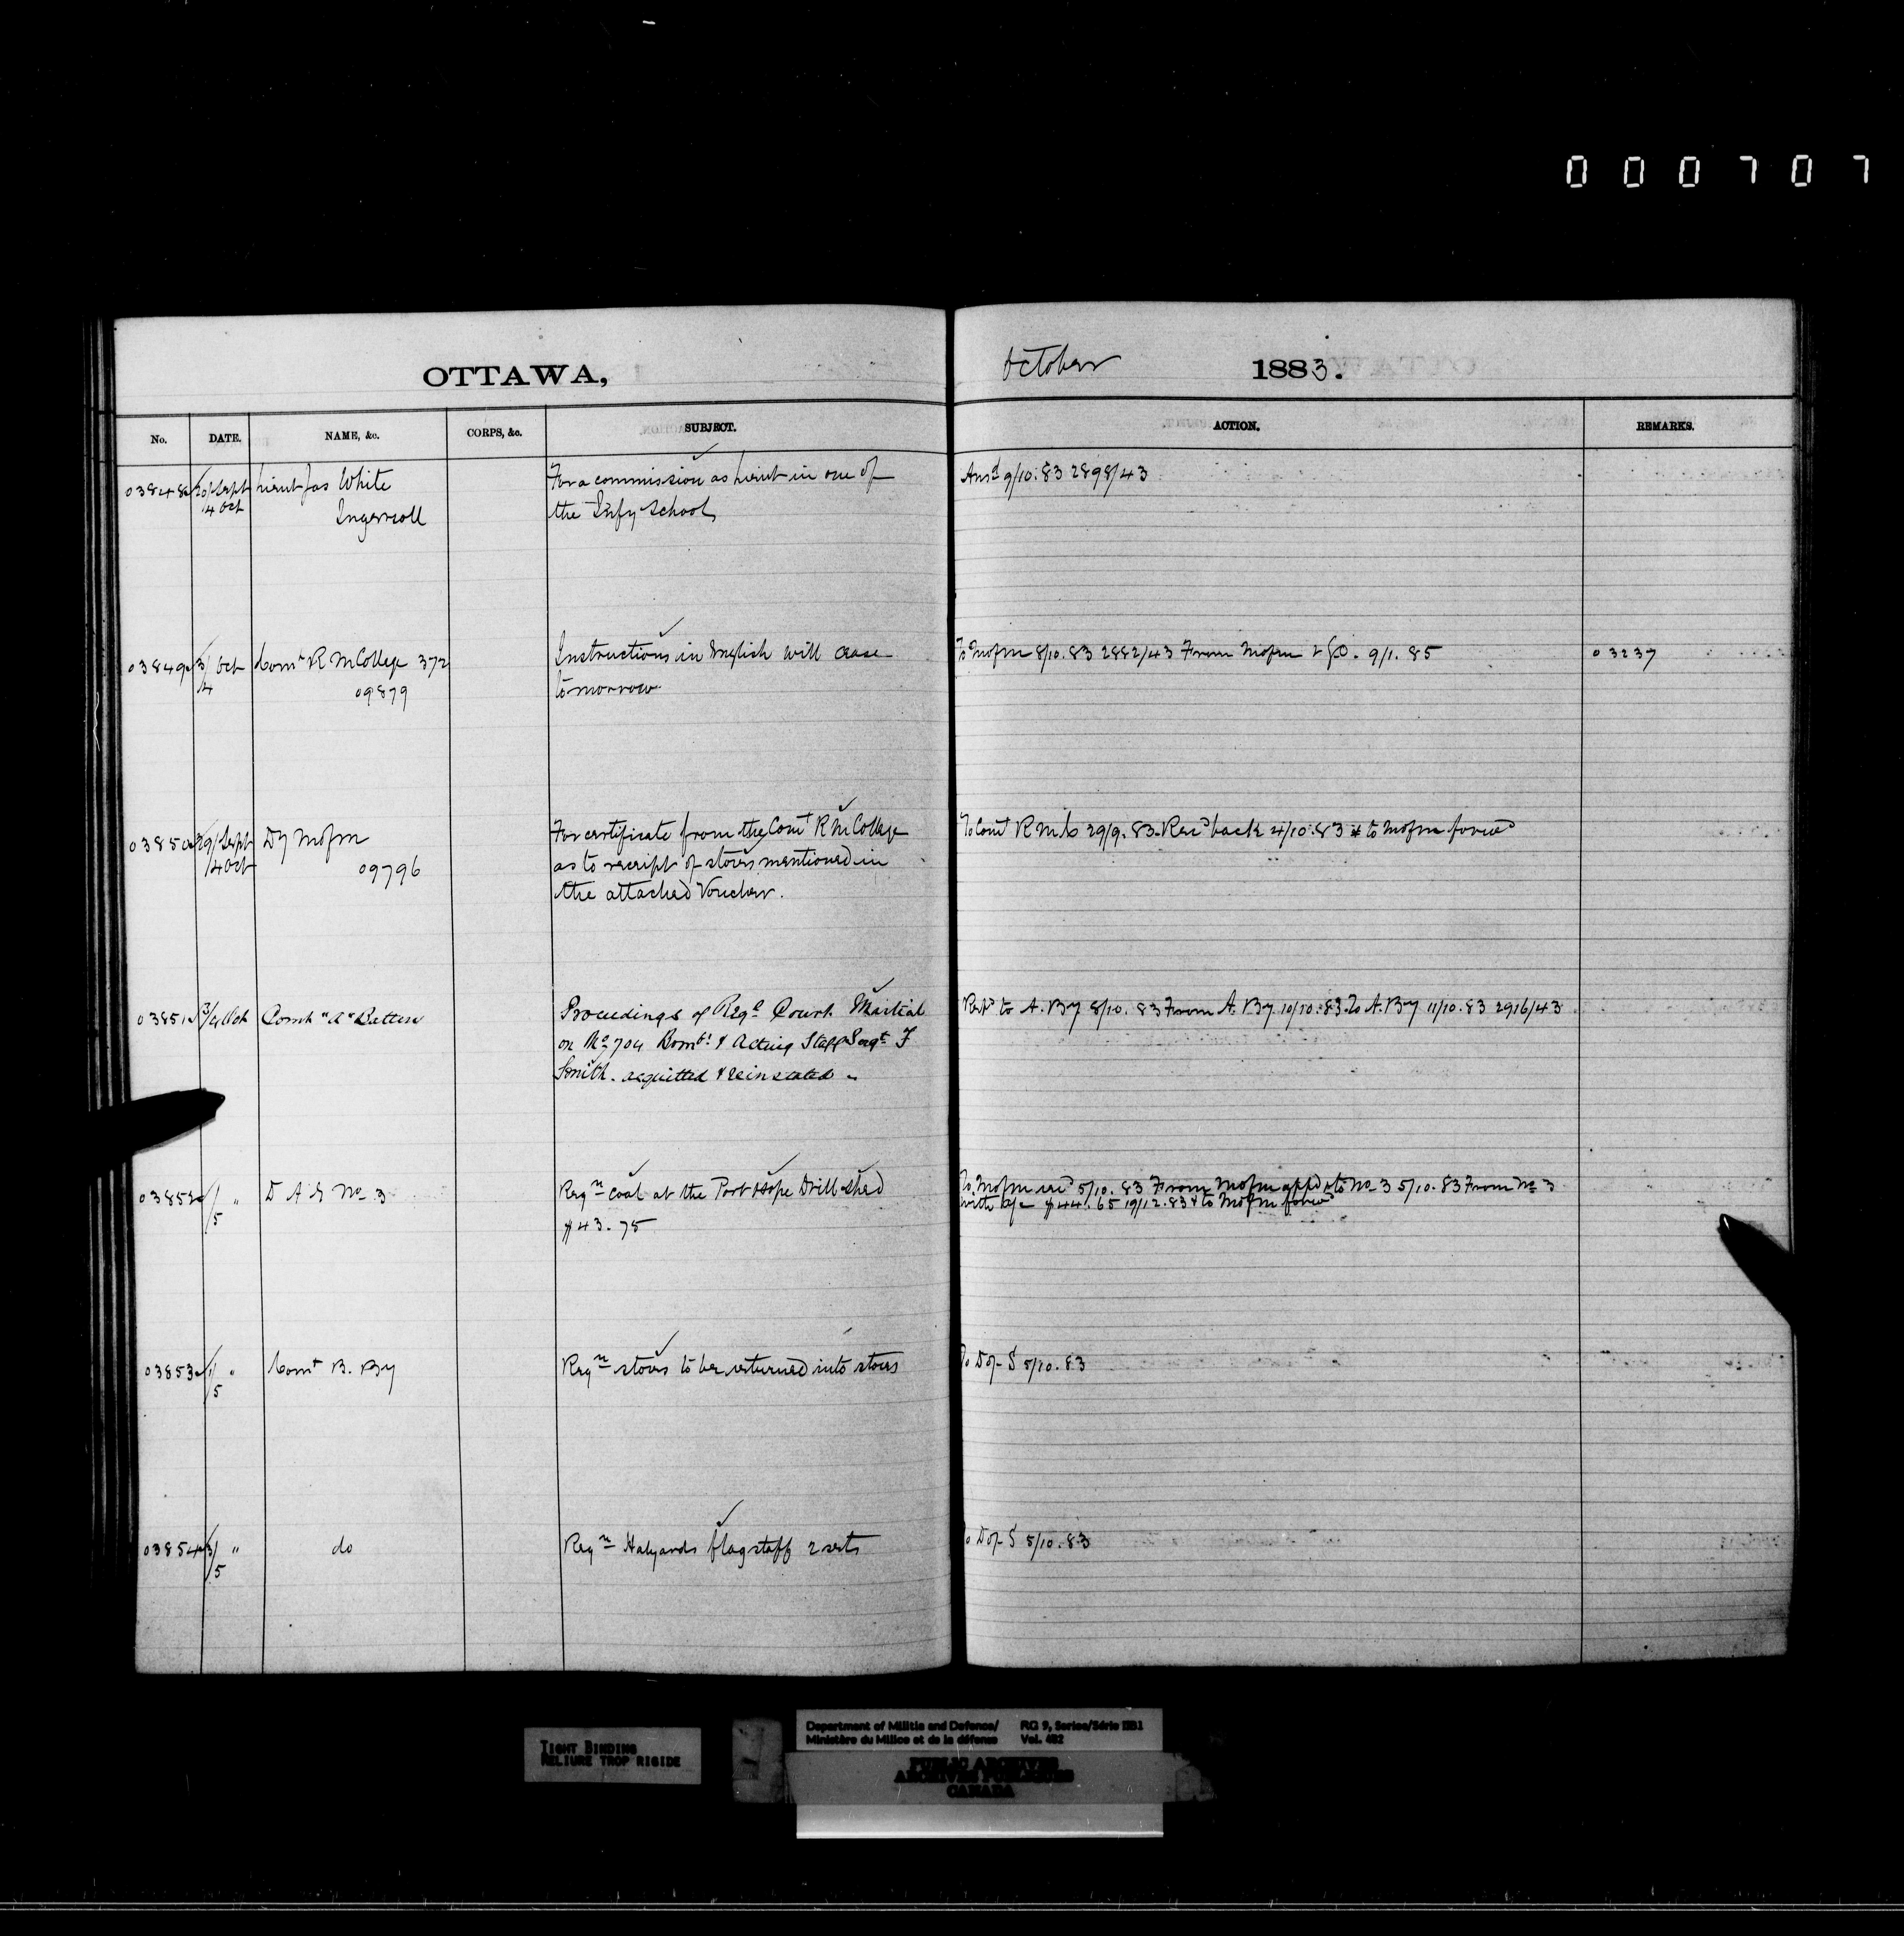 000707
OTTAWA,
October 1883.
No. DATE. NAME, &c. CORPS, &c. SUBJECT. ACTION. REMARKS.
03848 20/Sept Lieut Jas White For a commission as Lieut in one of Ansd 9/10.83 2898/43
4 Oct Ingersoll the Infy School
03849 3/Oct Comt R M College 372 Instructions in English will cease To MofM 8/10.83 2882/43 From MofM & 9/1.85 03237
4 09879 tomorrow
03850 29/Sept Dy MofM For certificate from the Comt R M College To Comt R M C 29/9.83. Recd back 4/10.83 & to MofM forwd
/4 Oct 09796 as to receipt of stores mentioned in
the attached Voucher.
03851 3/4 Oct Comt "A" Battery Proceedings of Regl Court Martial Retd to A. By 8/10.83 From A. By 10/10.83. To A. By 11/10.83 2916/43
on No 704 Bombr & Acting Staff Sergt F
Smith. acquitted & reinstated
03852 1/ " D A G No 3 Reqn coal at the Port Hope Drill shed To MofM 5/10.83 From MofM appd & to No 3 5/10.83 From No 3
5 $43.75 with a/c $44.65 19/12.83 & to MofM forwd
03853 1/ " Comt B. By Reqn stoves to be returned into stores To D of S 5/10.83
5
03854 3/ " do Reqn Halyards flagstaff 2 sets To D of S 5/10.83
5
TIGHT BINDING
RELIURE TROP RIGIDE
Department of Militia and Defence/ RG 9, Series/Série IIB1
Ministère du Milice et de la défense Vol. 482
PUBLIC ARCHIVES
ARCHIVES PUBLIQUES
CANADA